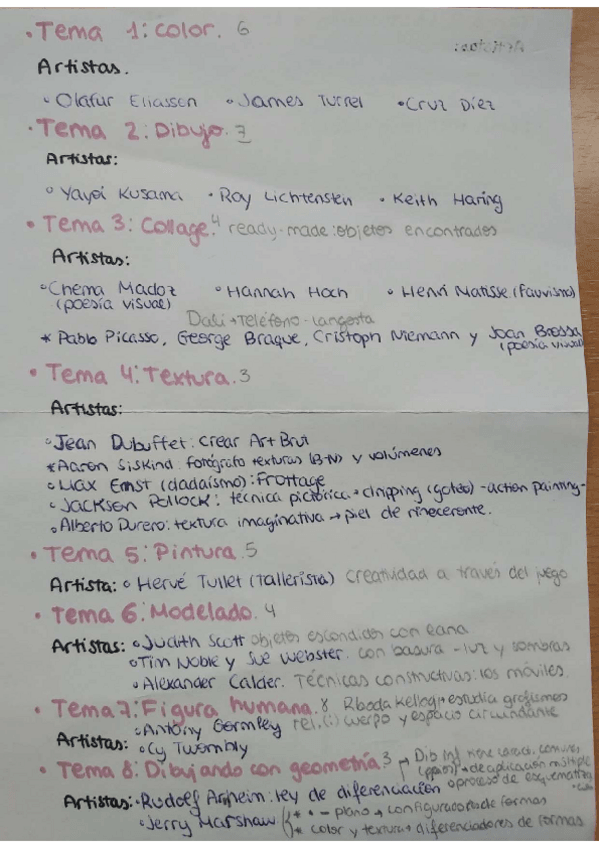 • Tema 1: color. 6
Artistas.
• Olafur Eliasson • James Turrel • Cruz Díez
• Tema 2: Dibujo. 7
Artistas:
• Yayoi Kusama • Roy Lichtenstein • Keith Haring
• Tema 3: Collage. 4 ready-made: objetos encontrados
Artistas:
• Chema Madoz • Hannah Hoch • Henri Matisse (fauvismo)
(poesía visual)
Dalí → Teléfono-langosta
* Pablo Picasso, George Braque, Cristoph Niemann y Joan Brossa
(poesía visual)
• Tema 4: Textura. 3
Artistas:
• Jean Dubuffet: crear Art Brut
* Aaron Siskind: fotógrafo texturas (B-N) y volúmenes
• Max Ernst (dadaísmo): Frottage
• Jackson Pollock: técnica pictórica → dripping (goteo) - action painting -
• Alberto Durero: textura imaginativa → piel de rinocerente.
• Tema 5: Pintura. 5
Artista: • Hervé Tullet (Tallerista) Creatividad a través del juego
• Tema 6: Modelado. 4
Artistas: • Judith Scott objetos escondidos con lana
• Tim Noble y Sue Webster. con basura - luz y sombras
• Alexander Calder. Técnicas constructivas: los móviles.
• Tema 7: Figura humana. 8 Rhoda Kellog → estudia grafismos
• Antony Gormley rel. (:) cuerpo y espacio circundante
Artistas: • Cy Twombly
• Tema 8: Dibujando con geometría. 3 → Dib Inf tiene caract. comunes
de aplicación múltiple
Artistas: • Rudolf Arheim: ley de diferenciación o proceso de esquematiza
• Jerry Marshaw * • — plano → configuradores de formas
* color y textura → diferenciadores de formas